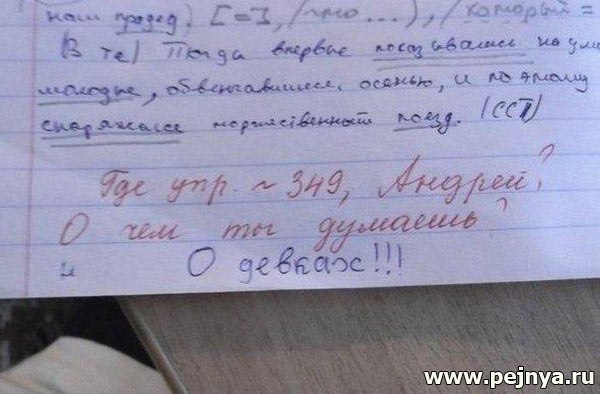 наш прадед. [=], (что...), (который =
(В те) Тогда впервые показывались на ули
молодые, обвенчавшиеся осенью, и поэтому
снаряжался торжественный поезд. (ССП)
Где упр. ~ 349, Андрей?
О чем ты думаешь?
О девках!!!
www.pejnya.ru